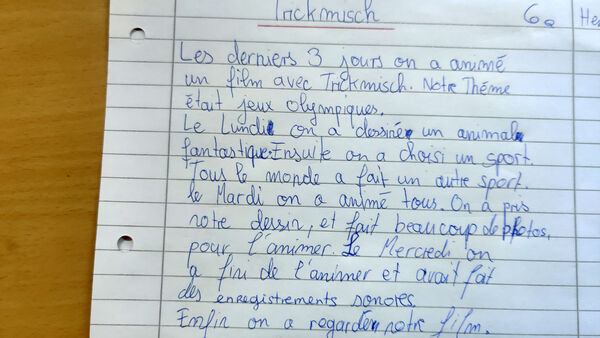 Trickmisch 6a He
Les derniers 3 jours on a animé
un film avec Trickmisch. Notre Thème
était jeux olympiques.
Le Lundi on a dessiné un animal
fantastique. Ensuite on a choisi un sport.
Tous le monde a fait un autre sport.
le Mardi on a animé tous. On a pris
notre dessin, et fait beaucoup de photos,
pour l'animer. Le Mercredi on
a fini de l'animer et avait fait
des enregistrements sonores
Enfin on a regardé notre film.